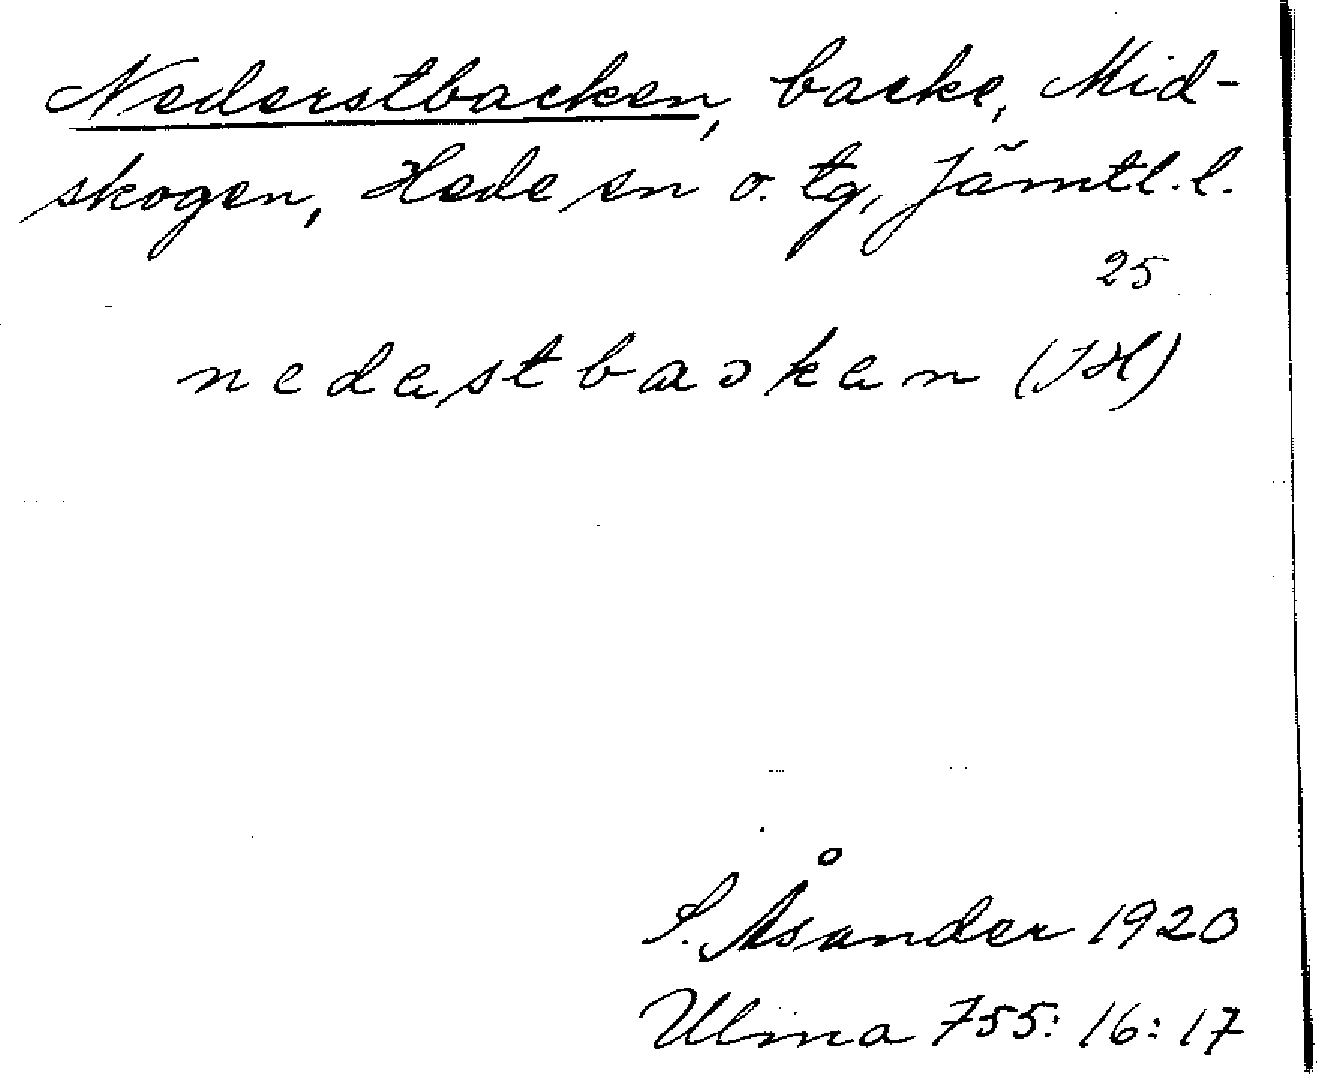 Nederstbacken, backe, Mid-
skogen, Hede sn o. tg, Jämtl. l.
25
nedastbaɔkan (JH)
S. Åsander 1920
Ulma 755: 16: 17